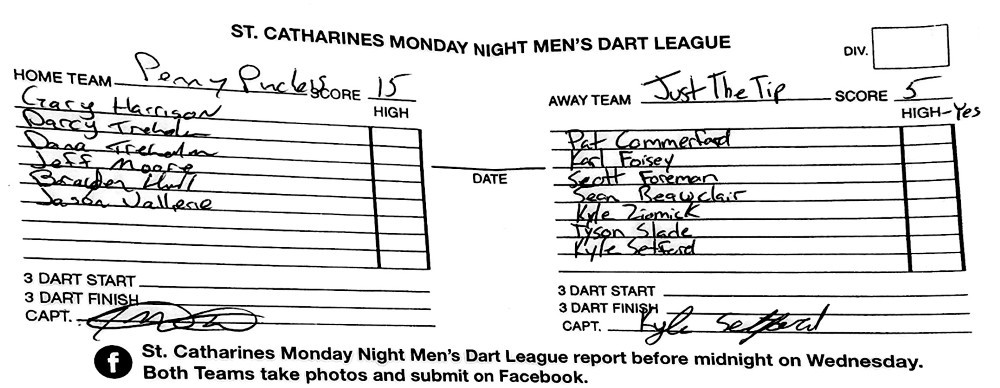 ST. CATHARINES MONDAY NIGHT MEN'S DART LEAGUE
DIV.
HOME TEAM Penny Pinchers SCORE 15
HIGH
Gary Harrison
Darcy Treholm
Dana Treholm
Jeff Moore
Brayden Hull
Jason Valliere
3 DART START
3 DART FINISH
CAPT.
DATE
AWAY TEAM Just The Tip SCORE 5
HIGH-Yes
Pat Commerford
Karl Foisey
Scott Foreman
Sean Beauclair
Kyle Ziomick
Tyson Slade
Kyle Setford
3 DART START
3 DART FINISH
CAPT. Kyle Setford
f St. Catharines Monday Night Men's Dart League report before midnight on Wednesday.
Both Teams take photos and submit on Facebook.